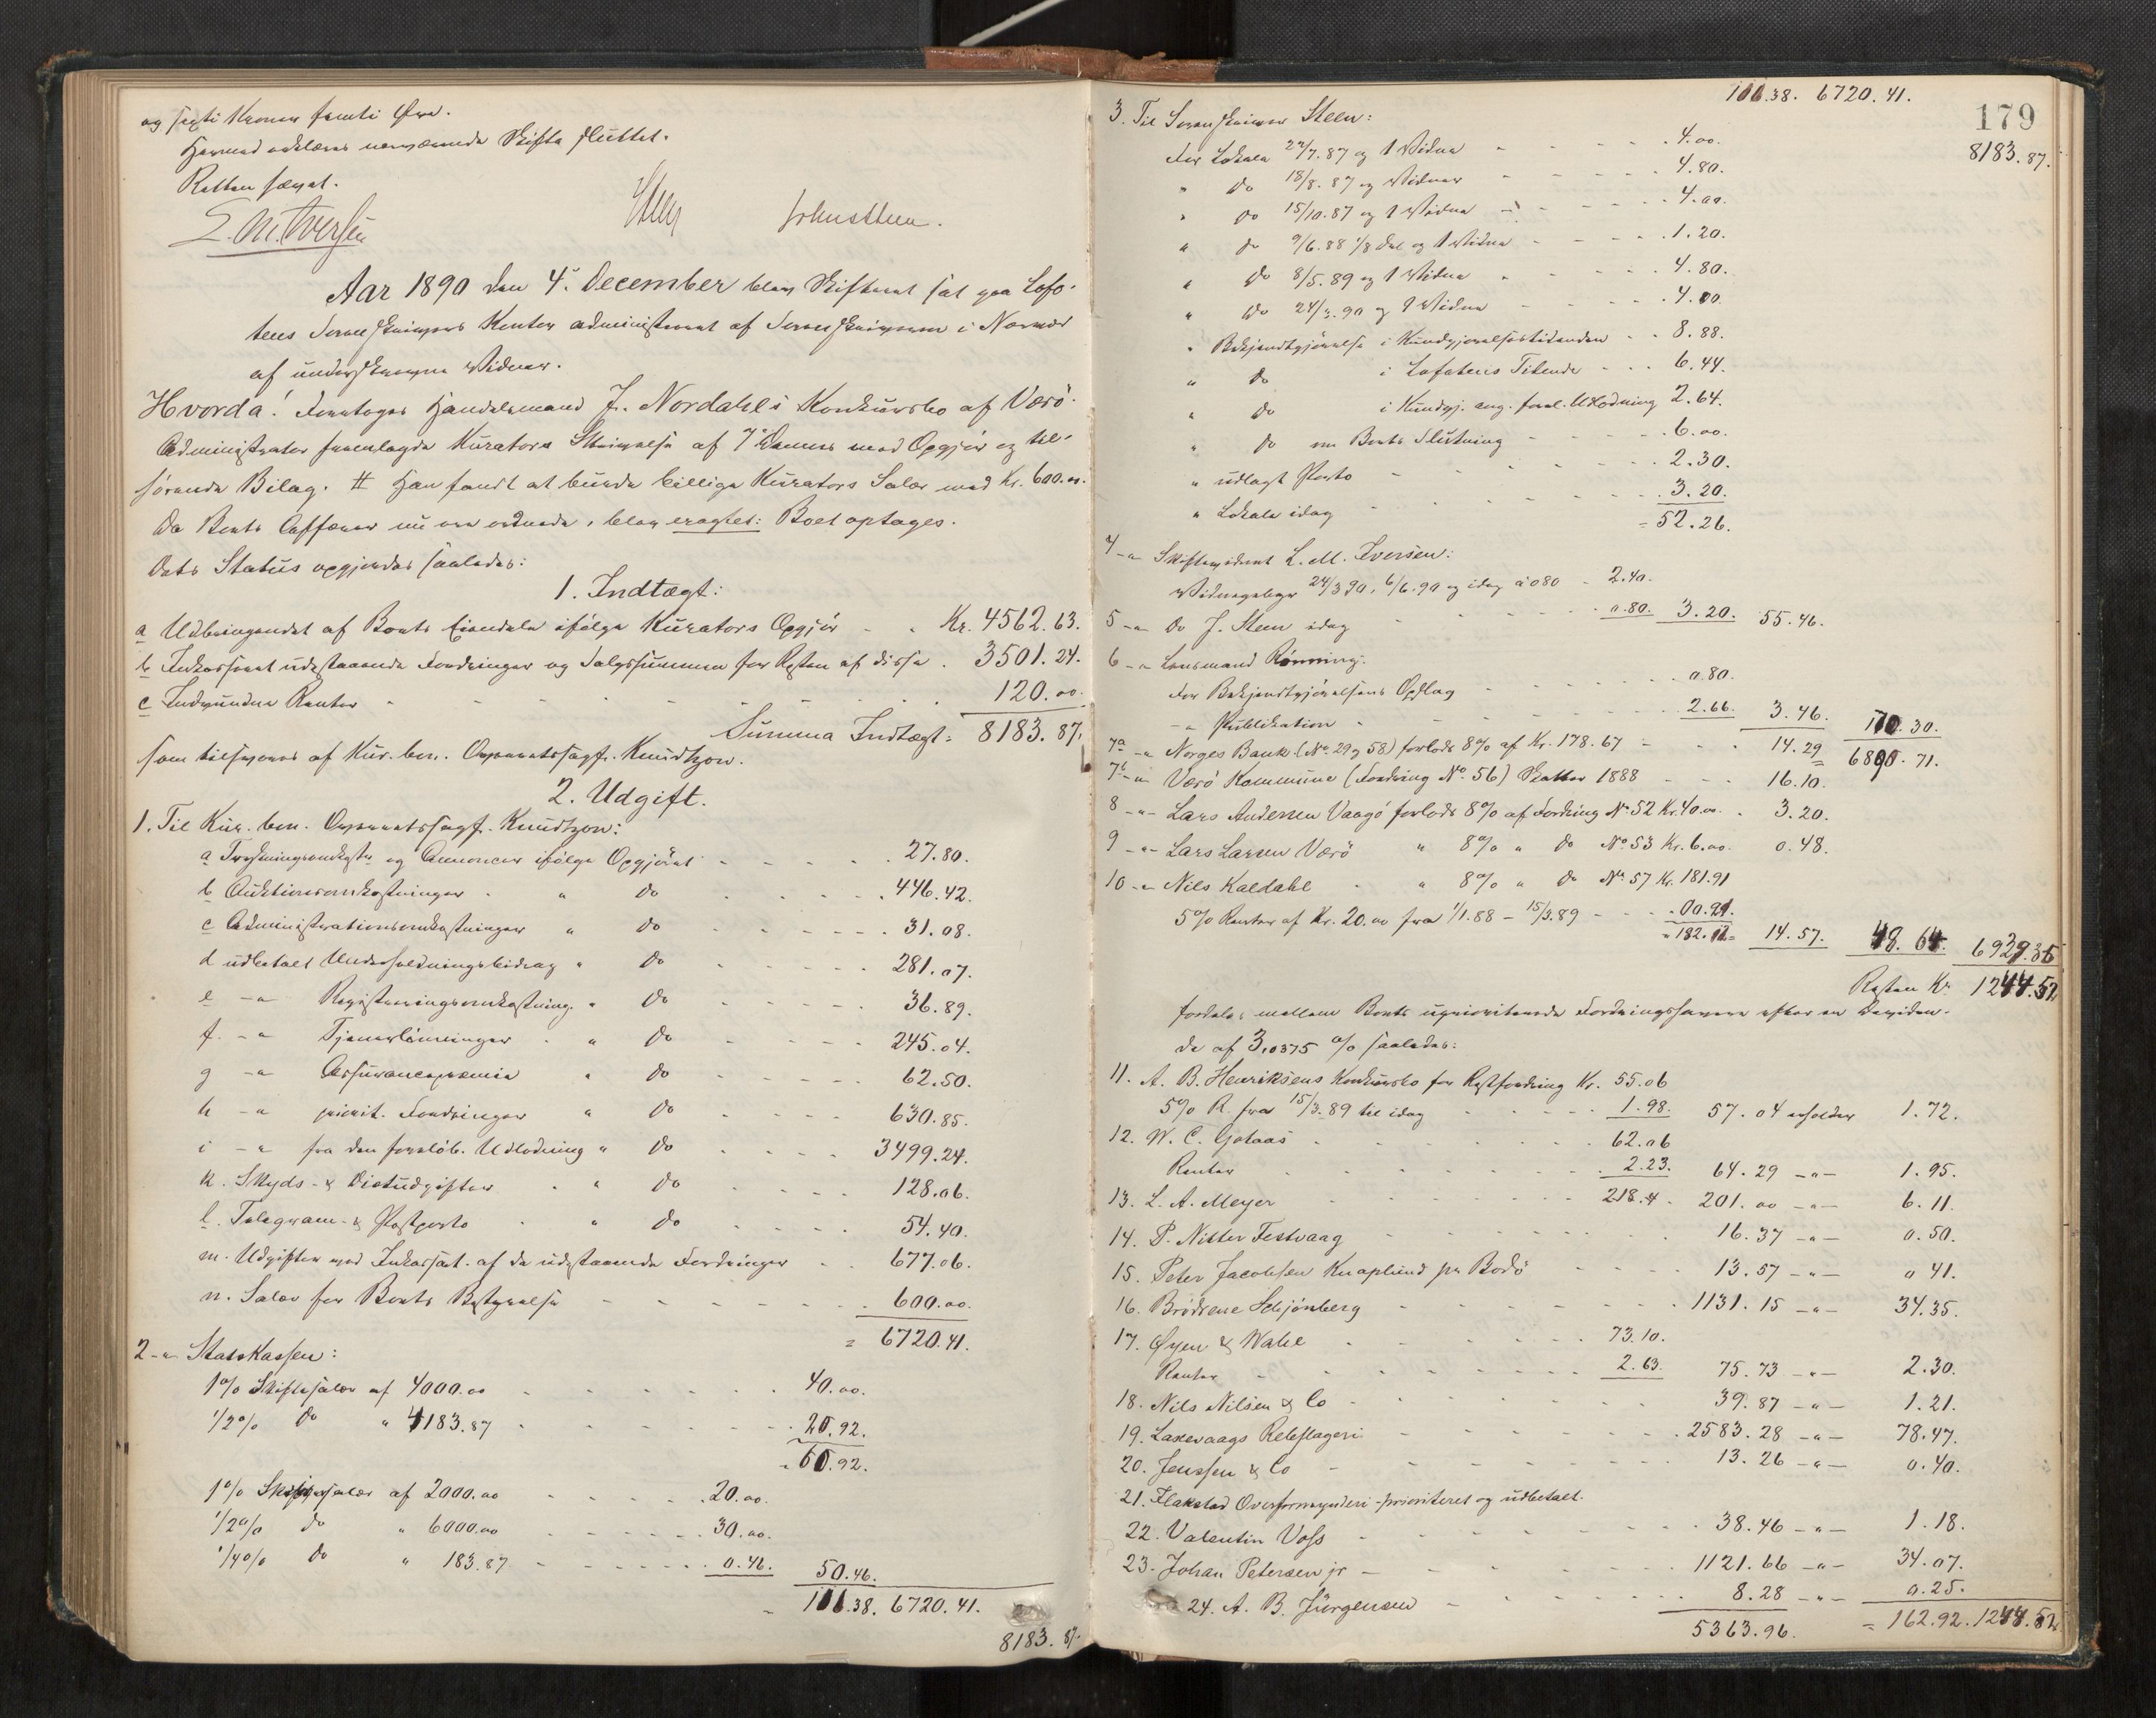 og sexti Kroner femti Øre.
Hermed erklæres nærværende Skifte sluttet.
Retten hævet.
L. M. Iversen Steen Johs Steen.
Aar 1890 den 4. December blev Skifteret sat paa Lofo-
tens Sorenskrivers Kontor administreret af Sorenskriveren i Nærvær
af underskrevne Vidner.
Hvorda! Foretoges Handelsmand J. Nordahls Konkursbo af Værö.
Administrator fremlagde Kurators Skrivelse af 7 ds med Opgjör og til-
hörende Bilag. # Han fandt at burde billige Kurators Salær med Kr. 600.00.
Da Boets Affærer nu var ordnede, blev eragtet: Boet optages.
Dets Status opgjordes saaledes:
1. Indtægt:
a Udbringendet af Boets Eiendele ifölge Kurators Opgjör - - Kr. 4562.63.
b Inkasseret udestaaende Fordringer og Salgssummen for Resten af disse . 3501.24.
c Indvundne Renter - - - - 120.00.
Summa Indtægt: 8183.87.
som tilsvares af Kur. bon. Overretssagf. Knudtzon.
2. Udgift.
1. Til Kur. bon. Overretssagf. Knudtzon:
a Trykningsomkostn. og Annoncer ifölge Opgjöret - - - 27.80.
b Auktionsomkostninger - " do - - - 446.42.
c Administrationsomkostninger " do - - - 31.08.
d udbetalt Underholdningsbidrag " do - - - 281.07.
e -"- Registreringsomkostning. " do - - - 36.89.
f. -"- Tjenerlönninger . " do - - - 245.04.
g -"- Assurancepræmie " do - - - 62.50.
h -"- priorit. Fordringer " do - - - 630.85.
i -"- fra den foreløb. Udlodning " do - - - 3499.24.
k. Skyds- & Diætudgifter . " do - - - 128.06.
l. Telegram- & Postporto . " do - - - 54.40.
m. Udgifter ved Inkassat. af de udestaaende Fordringer - - 677.06.
n. Salær for Boets Bestyrelse - - - - 600.00.
= 6720.41.
2 -"- Statskassen:
1% Skiftesalær af 4000.00 - - - - 40.00.
1/2% do " 4183.87 - - - - 20.92.
= 60.92.
1% af 2000.00 - - - - 20.00.
1/2% do " 6000.00 - - - - 30.00.
1/4% do " 183.87 - - - - 0.46. 50.46.
= 111.38. 6720.41.
8183.87.
111.38. 6720.41.
179
8183.87.
3. Til Sorenskriver Steen:
For Lokale 22/7.87 og 1 Vidne - - - 4.00.
" do 18/8.87 og Vidner - - - 4.80.
" do 15/10.87 og 1 Vidne - - - 4.00.
" do 9/6.88 1/8 Del og 1 Vidne - - - 1.20.
" do 8/5.89 og 1 Vidne - - - 4.80.
" do 24/3.90 og 1 Vidne - - - 4.00.
" Bekjendtgjörelse i Kundgjörelsestidenden - - 8.88.
" do i Lofotens Tidende - - - 6.44.
" do i Kundgj. ang. forel. Udlodning 2.64.
" do om Boets Slutning - - - 6.00.
" udlagt Porto - - - 2.30.
" Lokale idag - - - 3.20.
= 52.26.
4 -"- Skiftevidnet L. M. Iversen:
Vidnegebyr 24/3 90, 6/6.90 og idag à 0.80 - 2.40.
5 -"- Do J. Steen idag - - - 0.80. 3.20. 55.46.
6 -"- Lensmand Rønning:
For Bekjendtgjörelsens Opslag - - - 0.80.
-"- Publikation - - - 2.66. 3.46. 170.30.
7a -"- Norges Bank (No. 29 og 58) forlods 8% af Kr. 178.67 - - - 14.29 6890.71.
7b -"- Værö Kommune (Fordring No. 56) Skatter 1888 - - - 16.10.
8 -"- Lars Andersen Vaagö forlods 8% af Fordring No. 52 Kr. 40.00. . 3.20.
9 -"- Lars Larsen Værö " 8% " do No 53 Kr. 6.00. 0.48.
10 -"- Nils Kaldahl - " 8% " do No. 57 Kr. 181.91
5% Renter af Kr. 20.00 fra 1/1.88 - 15/3.89 - - - 00.21.
= 182.12 = 14.57. 48.64. 6939.35
Resten Kr. 1244.52
fordeles mellem Boets uprioriterede Fordringshavere efter en Dividen-
de af 3,0375 % saaledes:
11. A. B. Henriksens Konkursbo for Restfordring Kr. 55.06
5% R. fra 15/3.89 til idag - - - 1.98. 57.04 erholder 1.72.
12. W. C. Gotaas - - - 62.06
Renter - - - 2.23. 64.29 -"- 1.95.
13. L. A. Meyer - - - 218.4 . 201.00 -"- 6.11.
14. P. Nitter Festvaag - - - 16.37 -"- 0.50.
15. Peter Jacobsen Knaplund pr. Bodö - - - 13.57 -"- 0 41.
16. Brödrene Schjönberg - - - 1131.15 -"- 34.35.
17. Øyen & Wahl - - - 73.10.
Renter - - - 2.63. 75.73 -"- 2.30.
18. Nils Nilsen & Co - - - 39.87 -"- 1.21.
19. Laxevaags Rebslageri - - - 2583.28 -"- 78.47.
20. Jenssen & Co - - - 13.26 -"- 0.40.
21. Flakstad Overformynderi - prioriteret og udbetalt.
22. Valentin Voss - - - 38.46 -"- 1.18.
23. Johan Petersen jr - - - 1121.66 -"- 34.07.
24. A. B. Jürgensen - - - 8.28 -"- 0.25.
5363.96. = 162.92. 1244.52